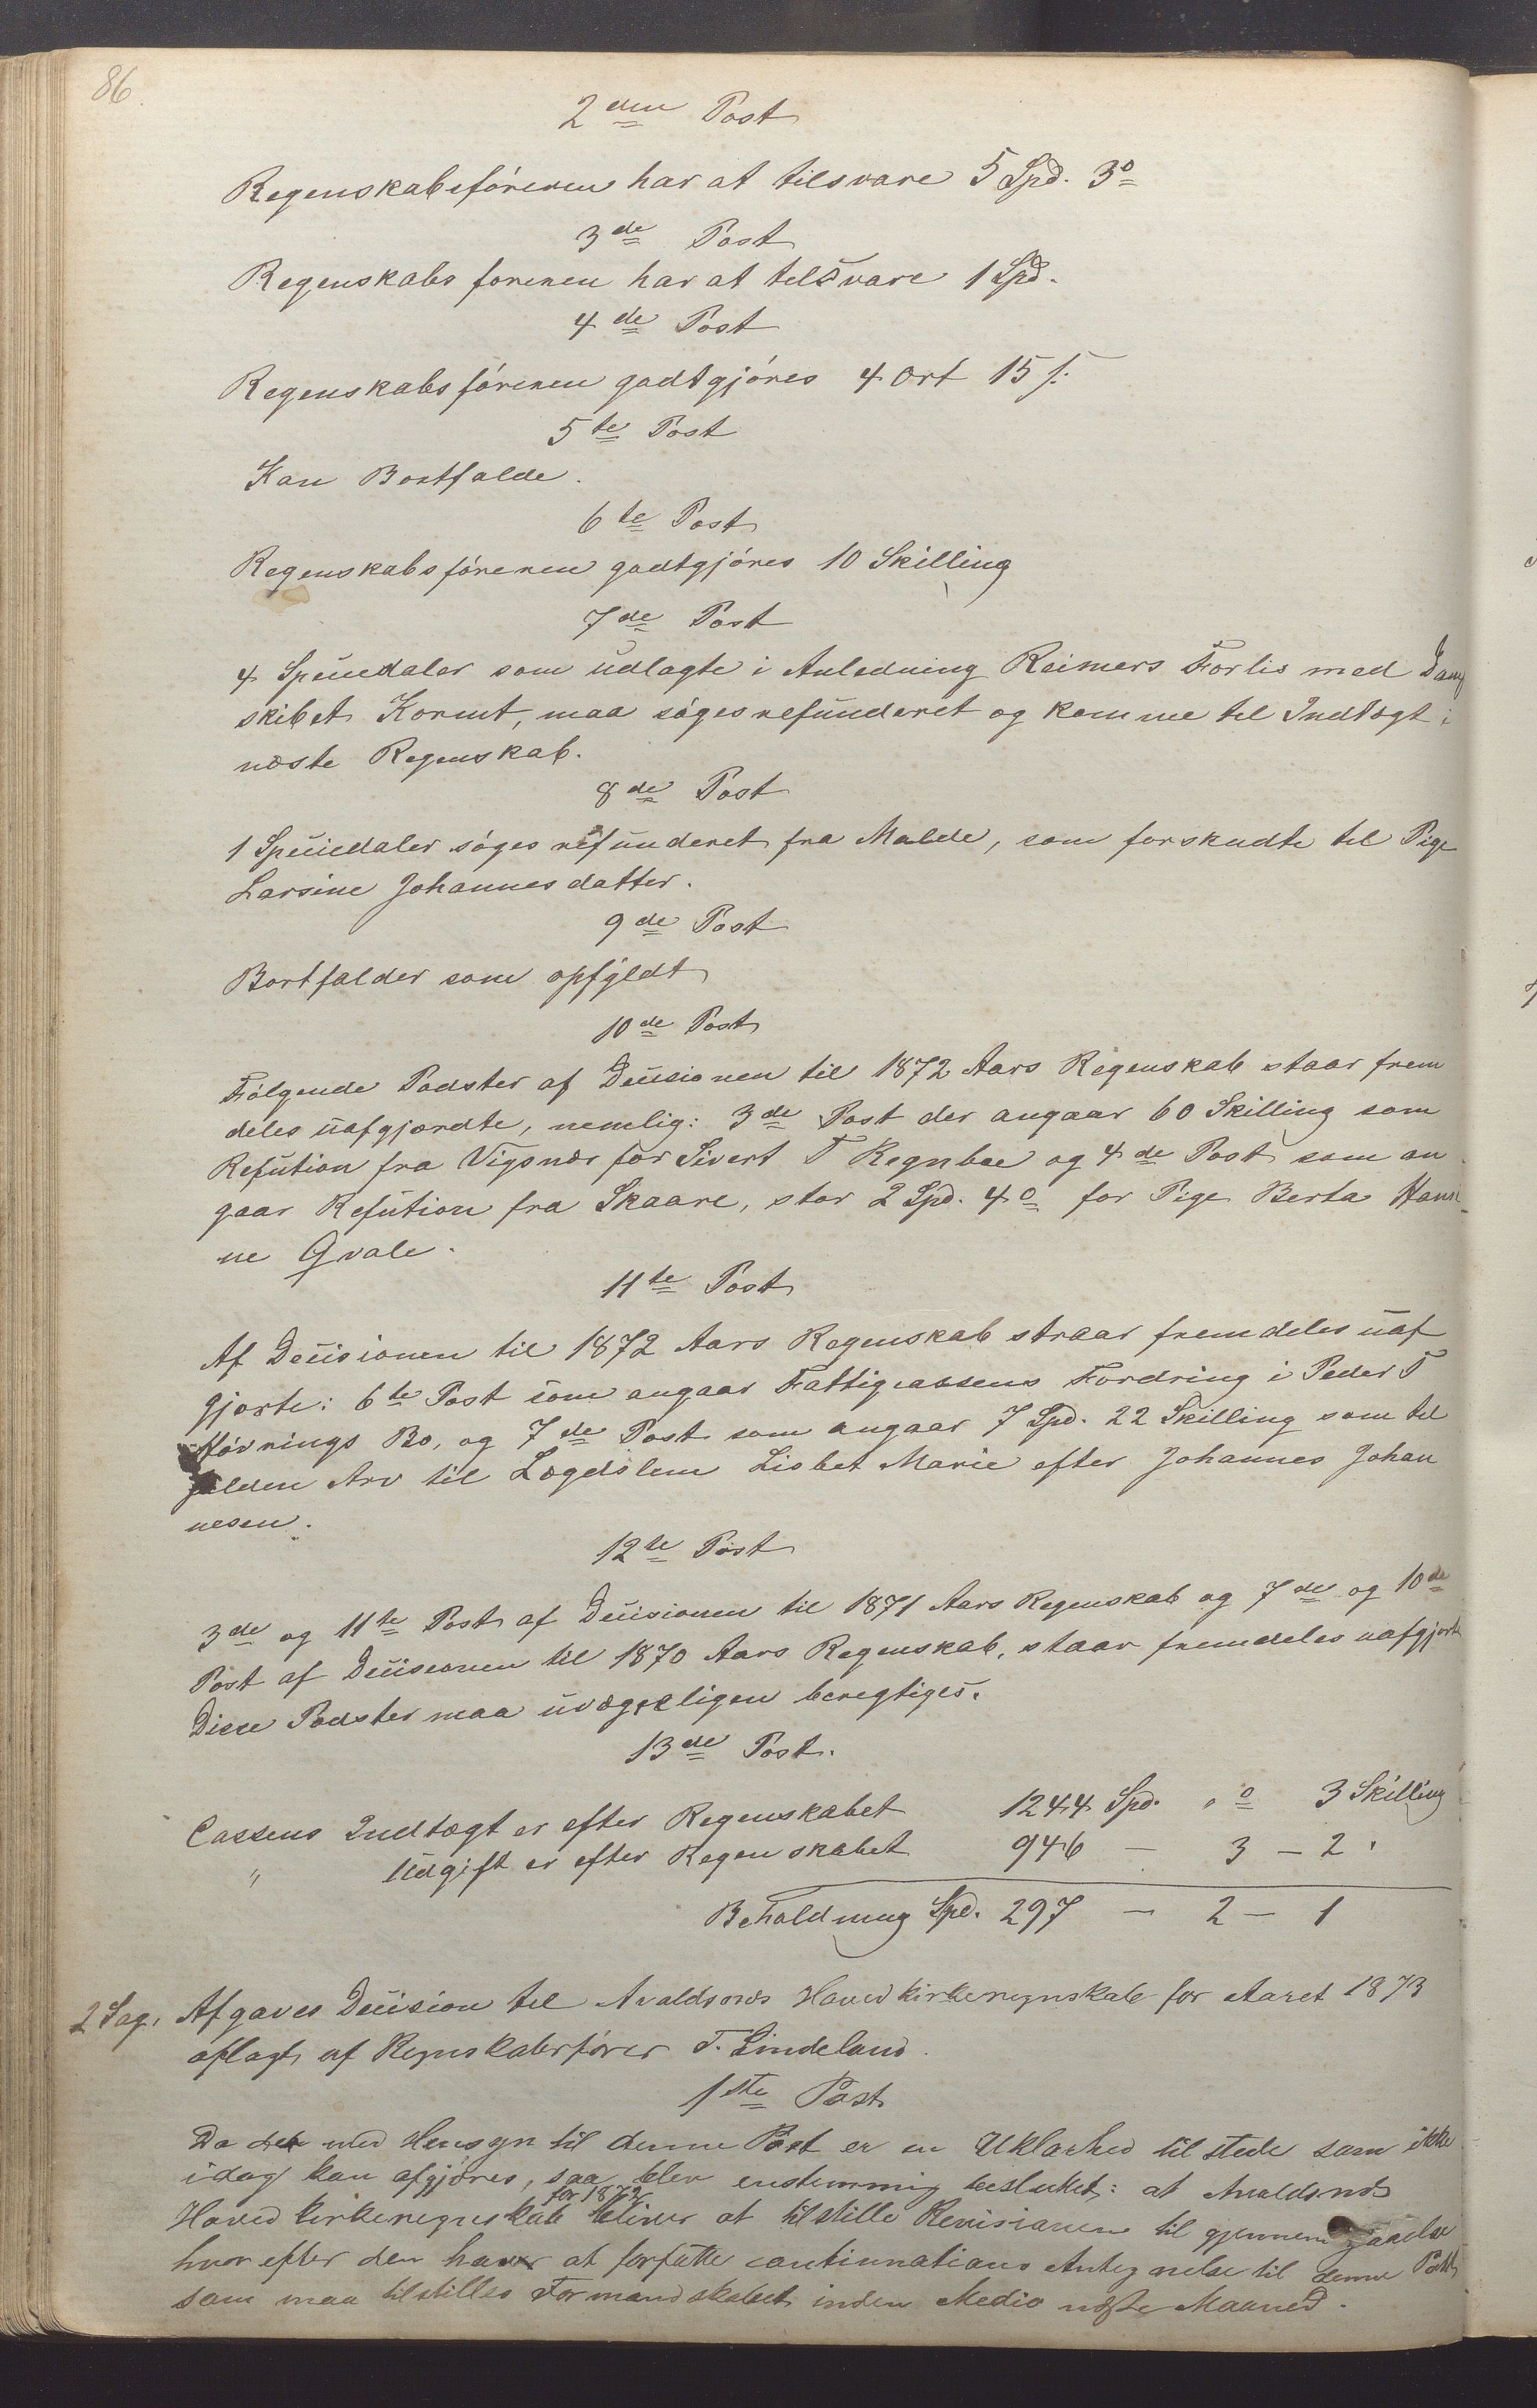 86.
2den Post
Regenskabsføreren har at tilsvare 5 Spd. 3o
3de Post
Regenskabs foreren har at tilsvare 1 Spd.
4de Post
Regenskabsføreren godtgjøres 4 Ort 15 s.
5te Post
Kan Bortfalde.
6te Post
Regenskabsføreren godtgjøres 10 Skilling
7de Post
4 Speciedaler som udlagte i Anledning Reimers Forlis med Damp
skibet Kormt, maa søges refunderet og komme til Indtægt i
næste Regenskab.
8de Post
1 Speciedaler søges refunderet fra Malde, som forskudte til Pige
Larsine Johannesdatter.
9de Post
Bortfalder som opfyldt
10de Post
Følgende Podster af Decisionen til 1872 Aars Regenskab staar frem
deles uafgjordte, nemlig: 3de Post der angaar 60 Skilling som
Refution fra Vigsnæs for Sivert T Regnbae og 4de Post som an
gaar Refution fra Skaare, stor 2 Spd. 4o for Pige Berta Hansi
ne Qvale.
11te Post
Af Decisionen til 1872 Aars Regenskab straar fremdeles uaf
gjorte: 6te Post som angaar Fattigcassens Fordring i Peder T
Høvnings Bo, og 7de Post som angaar 7 Spd. 22 Skilling som til
falden Arv til Lægdslem Lisbet Marie efter Johannes Johan
nesen.
12te Post
3de og 11te Post af Decisionen til 1871 Aars Regenskab og 7de og 10de
Post af Decisionen til 1870 Aars Regenskab, staar fremdeles uafgjort
Disse Podster maa uvægerligen beregtiges.
13de Post.
Cassens Indtægt er efter Regenskabet 1244 Spd. " o 3 Skilling
" Udgift er efter Regenskabet 946 — 3 — 2 "
Beholdning Spd. 297 — 2 — 1
2 Sag. Afgaves Decision til Avaldsnæs Hovedkirkeregnskab for Aaret 1873
aflagt af Regnskabsfører T. Lindeland.
1ste Post
Da der med Hensyn til denne Post er en Uklarhed til stede som ikke
idag kan afgjøres, saa blev enstemmig besluttet: at Avaldsnæs
for 1872
Hovedkirkeregnskab bliver at tilstille Revisionen til gjennemgaaelse
hvorefter den haver at forfatte continuations Antegnelse til denne Post
som maa tilstilles Formandskabet inden Medio næste Maaned.